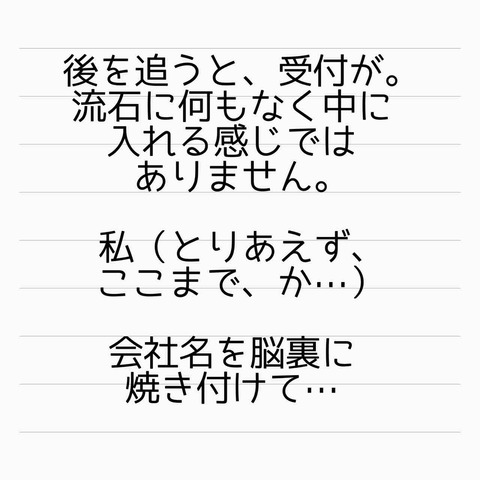 後を追うと、受付が。
流石に何もなく中に
入れる感じでは
ありません。
私（とりあえず、
ここまで、か…）
会社名を脳裏に
焼き付けて…